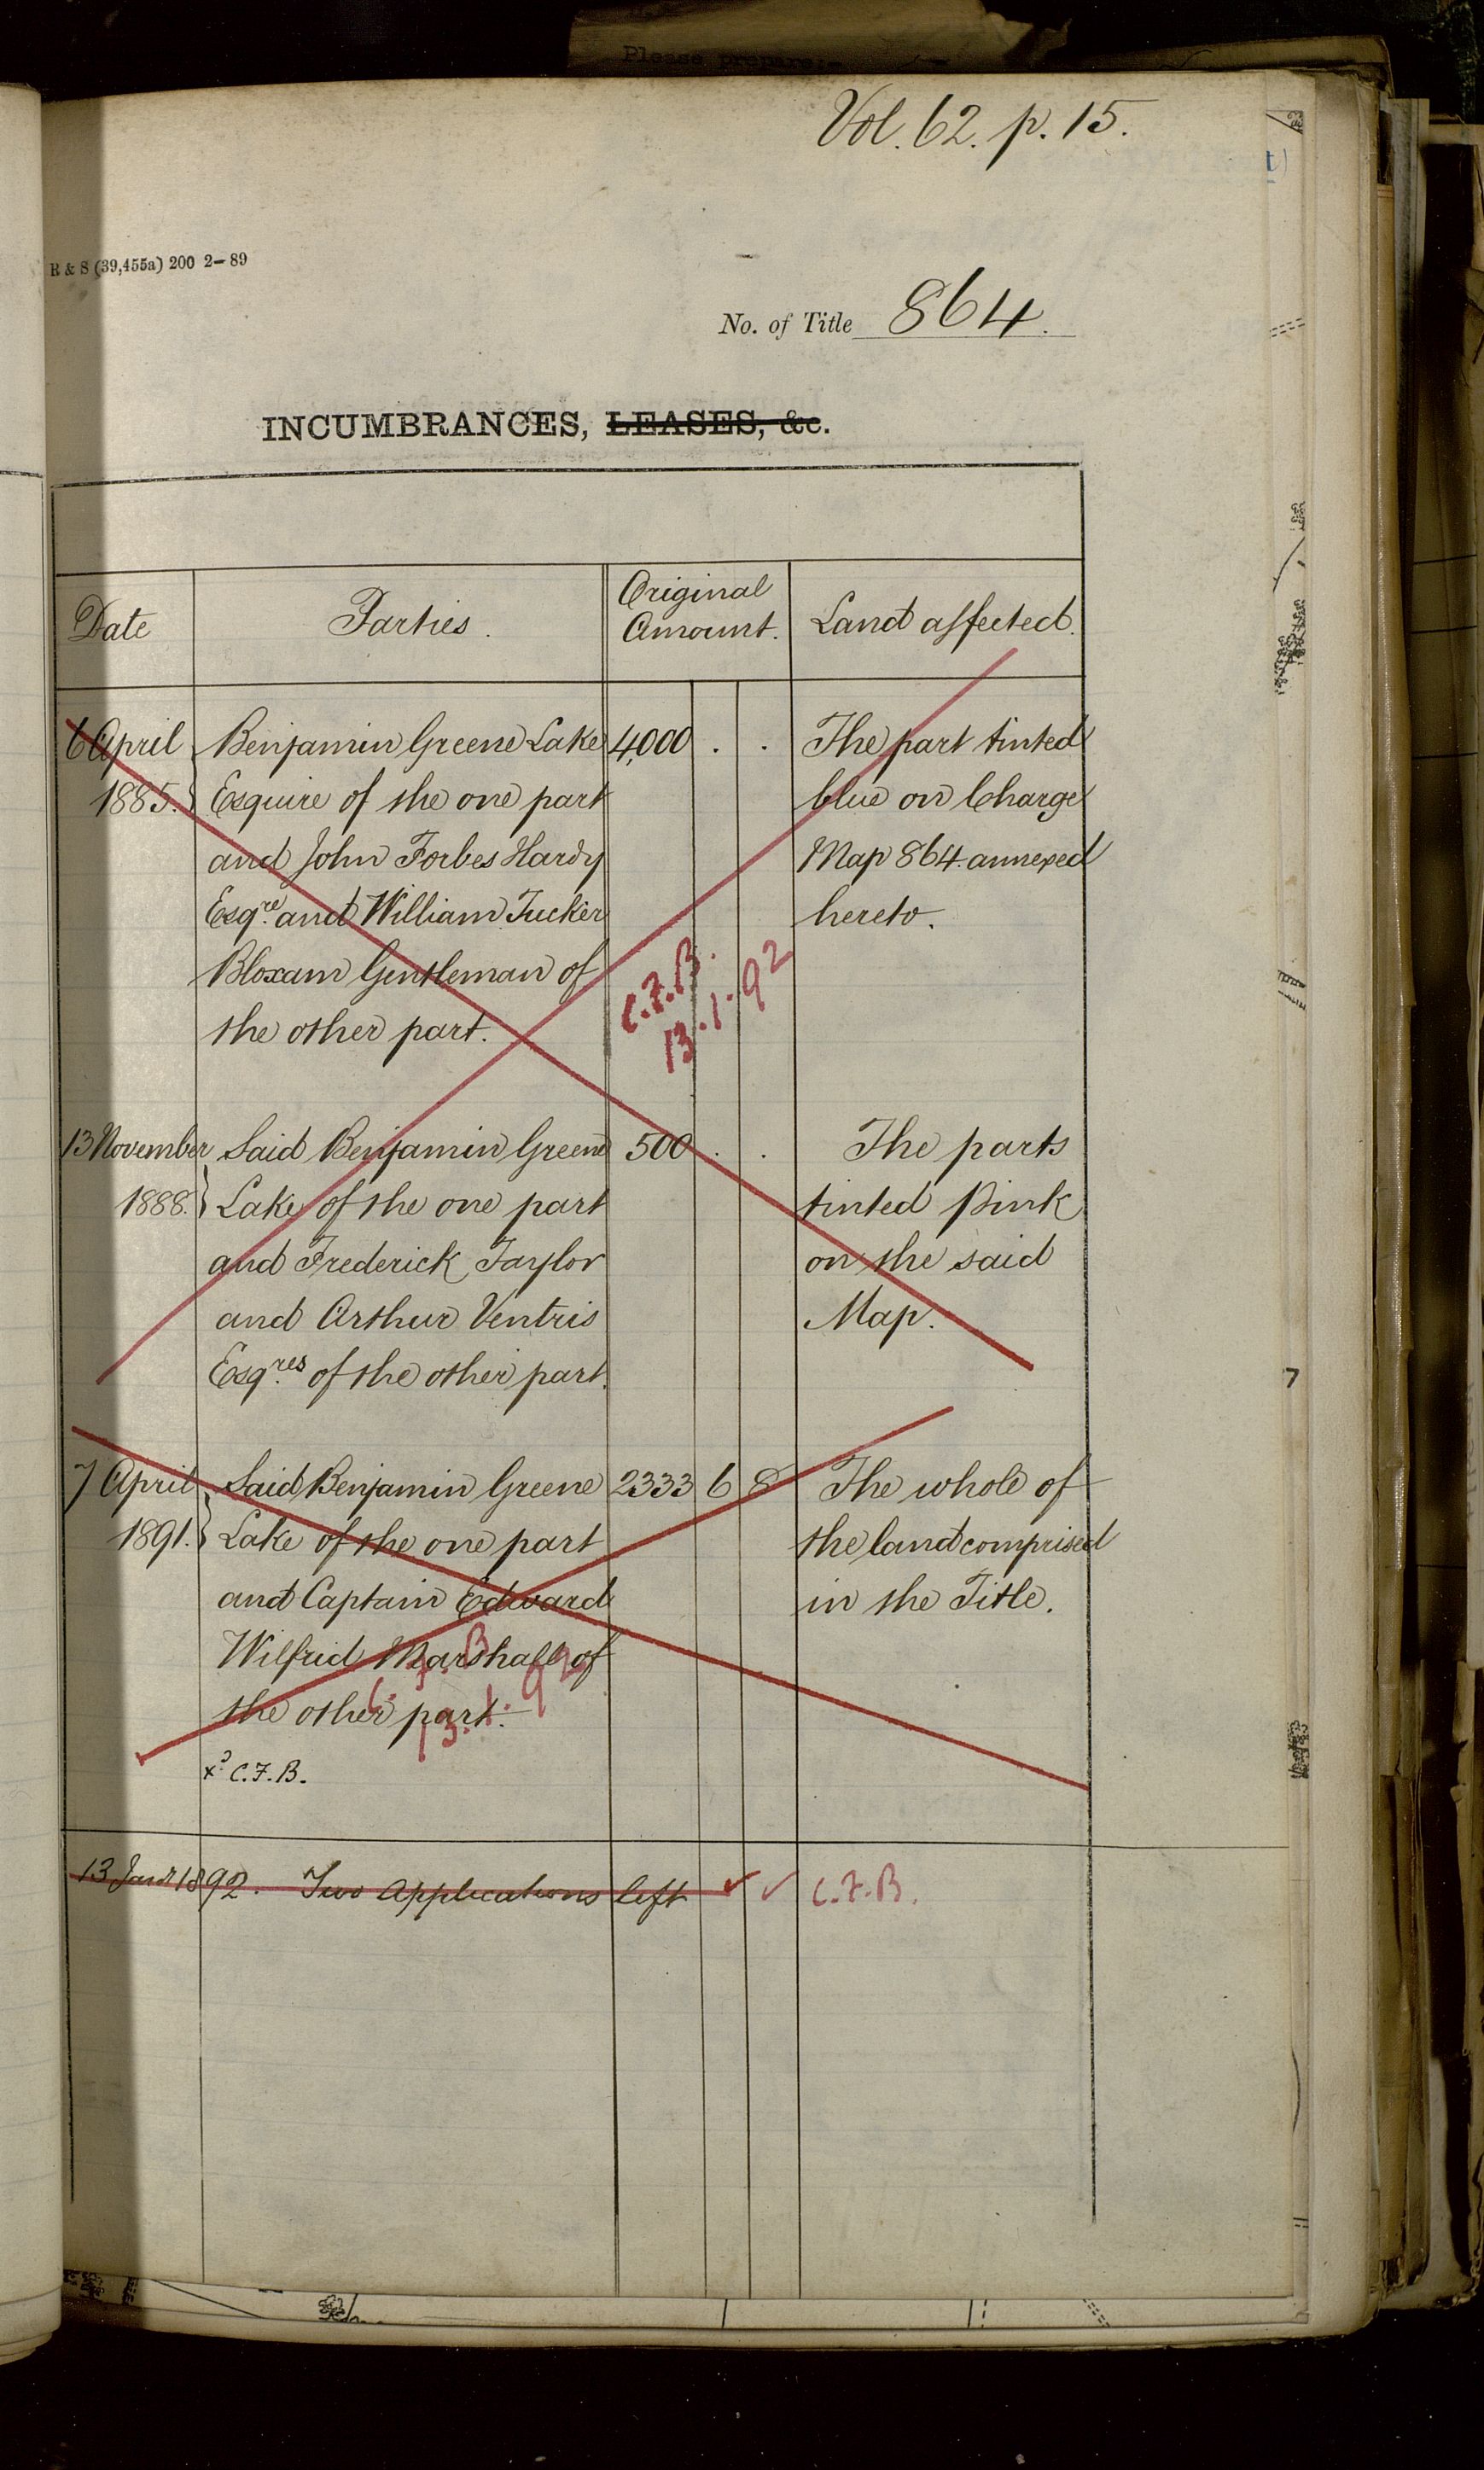 Please prepare:-
Vol. 62. p. 15.
R & S (39,455a) 200 2-89
No. of Title 864.
INCUMBRANCES, LEASES, &c.
Date Parties. Original Amount. Land affected.
6 April Benjamin Greene Lake 4,000 . . The part tinted
1885. } Esquire of the one part blue on Charge
and John Forbes Hardy Map 864 annexed
Esqre. and William Tucker hereto.
Bloxam Gentleman of
the other part.
C.F.B.
13.1.92
13 November Said Benjamin Greene 500 . . The parts
1888. } Lake of the one part tinted pink
and Frederick Taylor on the said
and Arthur Ventris Map.
Esqres. of the other part.
7 April Said Benjamin Greene 2333 6 8 The whole of
1891. } Lake of the one part the land comprised
and Captain Edward in the Title.
Wilfrid Marshall of
the other part.
C.F.B.
13.1.92
C.F.B.
13 Jany 1892. Two Applications left ✓ ✓ C.F.B.
7